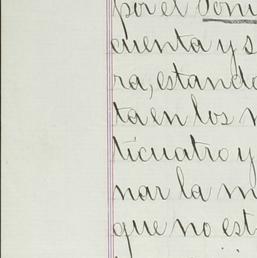 por el Toni
cuenta y s
ra, estando
ta en los n
ticuatro y
nar la m
que no est